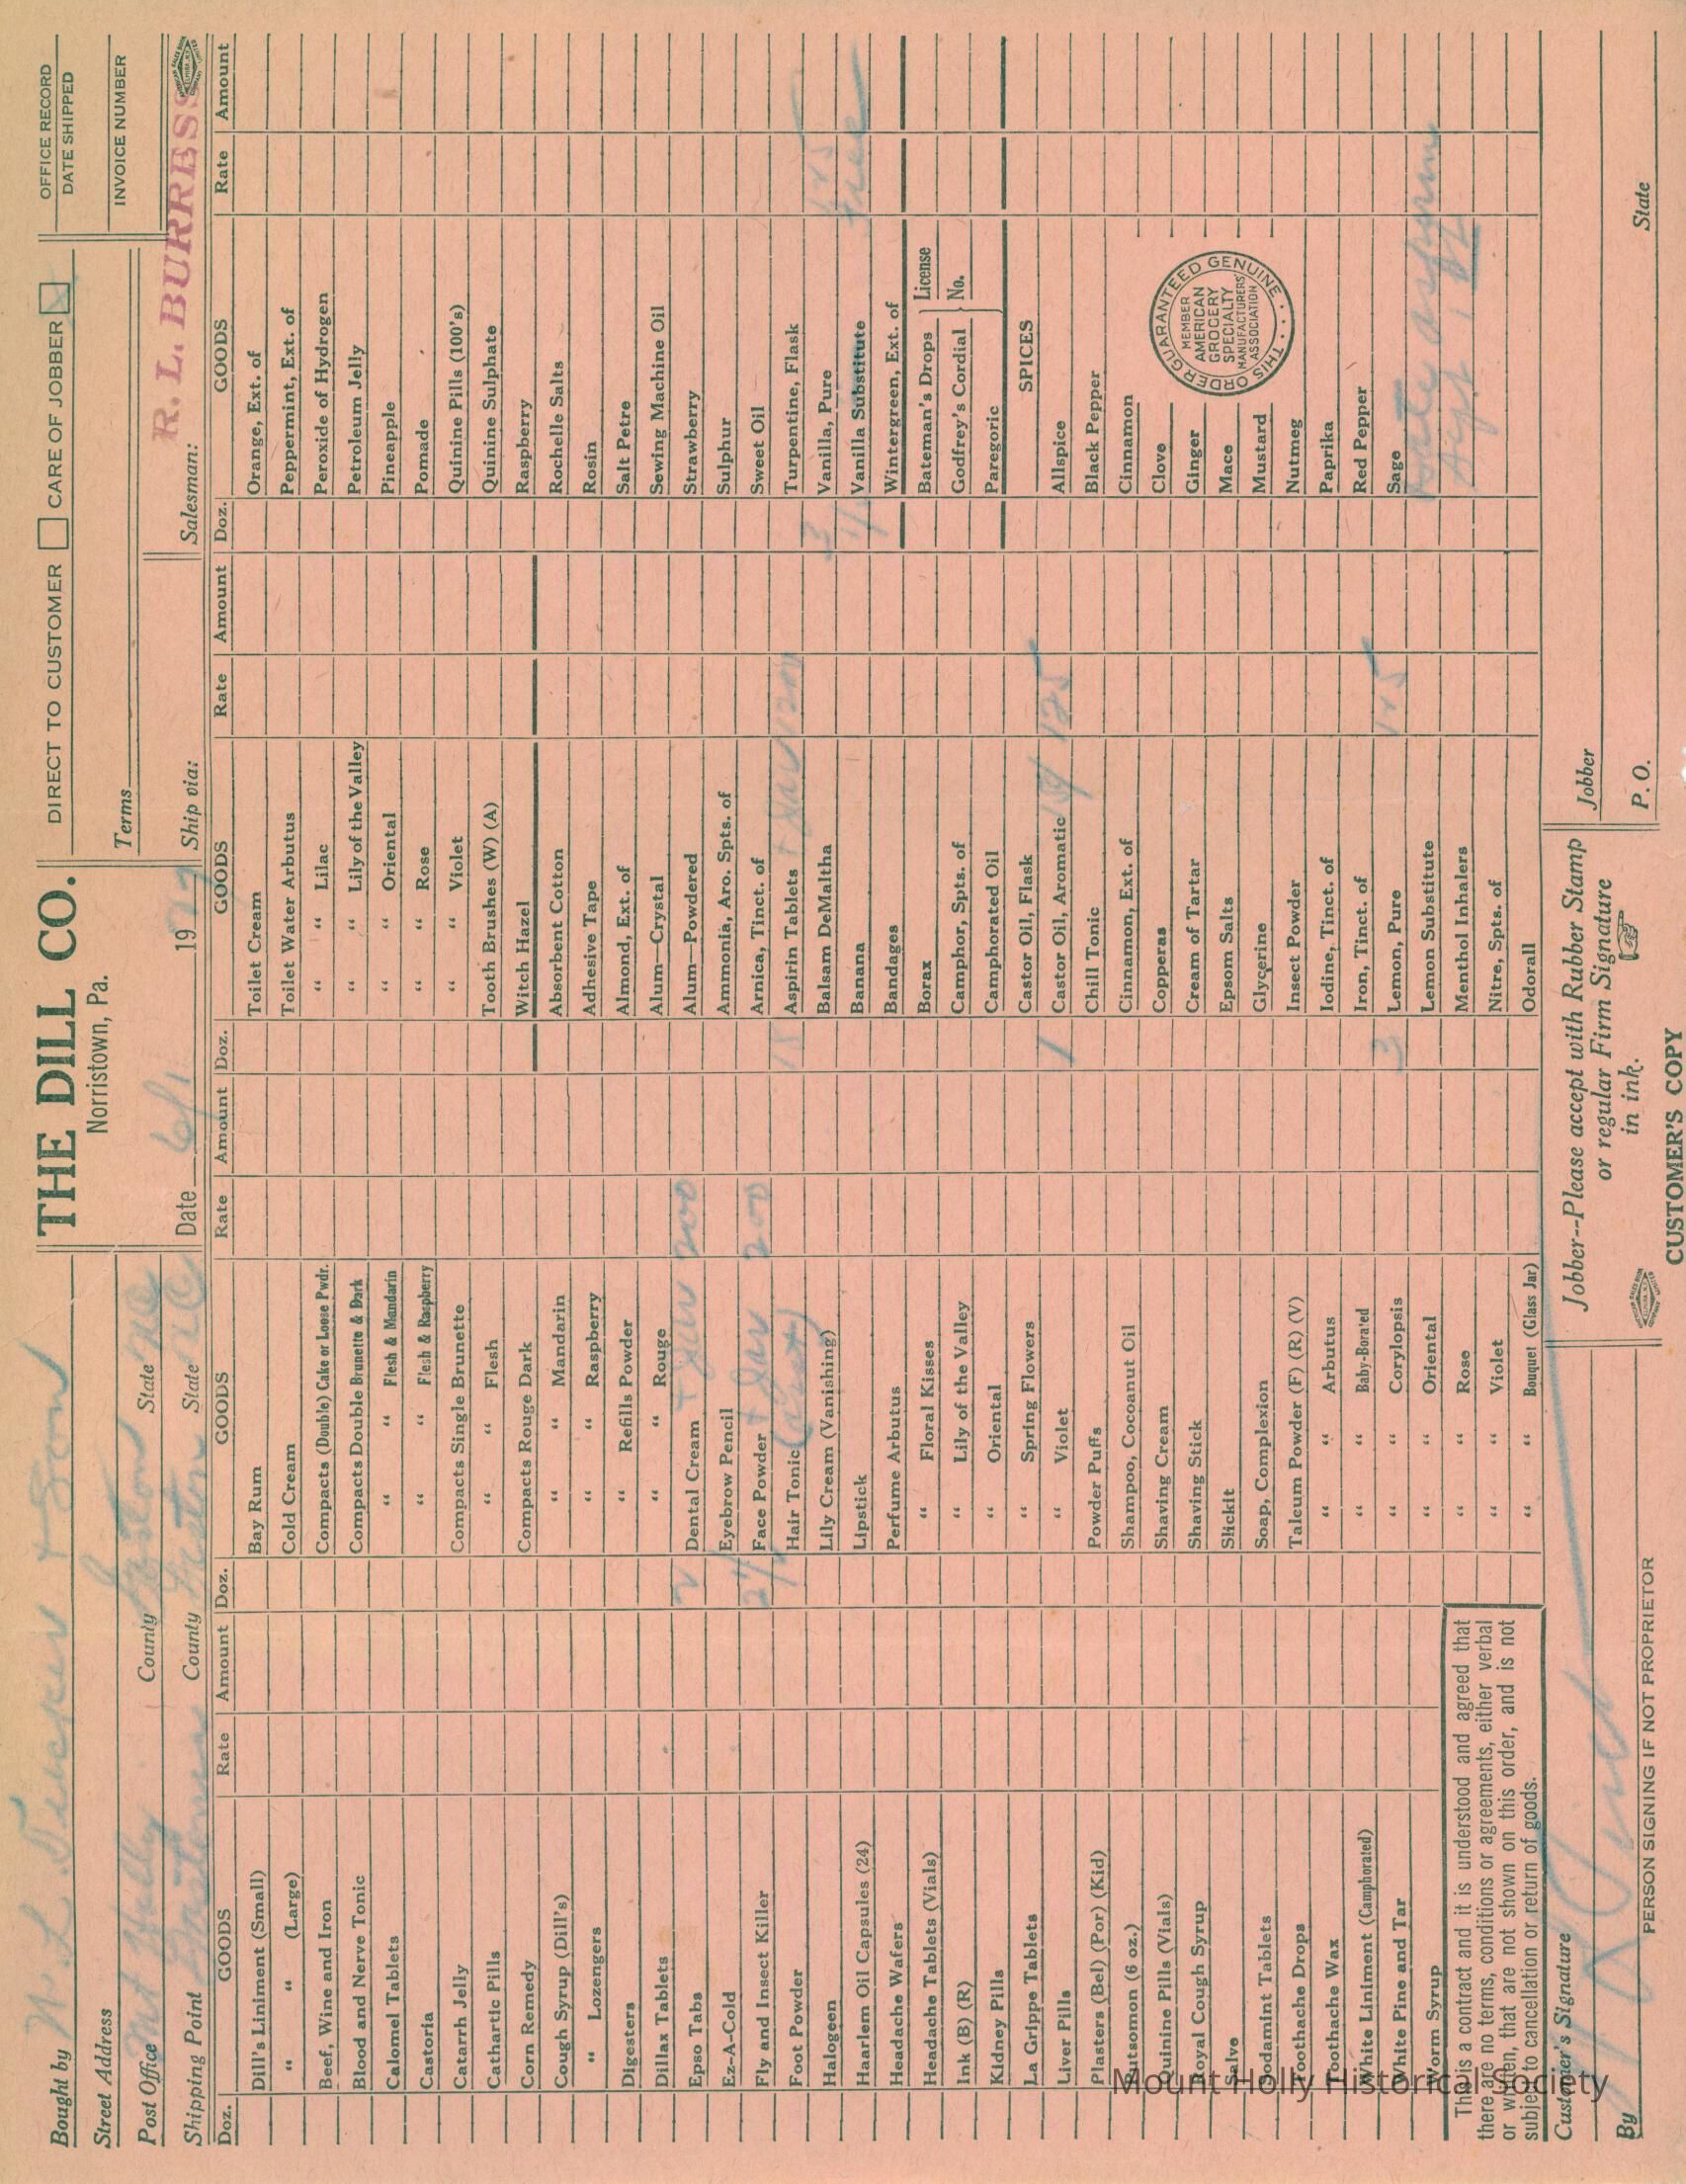 THE DILL CO.
Norristown, Pa.
DIRECT TO CUSTOMER CARE OF JOBBER
OFFICE RECORD
DATE SHIPPED
INVOICE NUMBER
Bought by
Street Address
Terms
Post Office Mt Holly County Gaston State NC
Shipping Point County Gaston State NC Date 6/1 19 Ship via: Salesman: R. L. BURRESS
Doz. GOODS Rate Amount
Dill's Liniment (Small)
“ “ (Large)
Beef, Wine and Iron
Blood and Nerve Tonic
Calomel Tablets
Castoria
Catarrh Jelly
Cathartic Pills
Corn Remedy
Cough Syrup (Dill's)
“ Lozengers
Digesters
Dillax Tablets
Epso Tabs
Ez-A-Cold
Fly and Insect Killer
Foot Powder
Halogeen
Haarlem Oil Capsules (24)
Headache Wafers
Headache Tablets (Vials)
Ink (B) (R)
Kidney Pills
La Grippe Tablets
Liver Pills
Plasters (Bel) (Por) (Kid)
Putsomon (6 oz.)
Quinine Pills (Vials)
Royal Cough Syrup
Salve
Sodamint Tablets
Toothache Drops
Toothache Wax
White Liniment (Camphorated)
White Pine and Tar
Worm Syrup
This is a contract and it is understood and agreed that
there are no terms, conditions or agreements, either verbal
or written, that are not shown on this order, and is not
subject to cancellation or return of goods.
Doz. GOODS Rate Amount
Bay Rum
Cold Cream
Compacts (Double) Cake or Loose Pwdr.
Compacts Double Brunette & Dark
“ “ Flesh & Mandarin
“ “ Flesh & Raspberry
Compacts Single Brunette
“ “ Flesh
Compacts Rouge Dark
“ “ Mandarin
“ “ Raspberry
“ Refills Powder
“ “ Rouge
2 Dental Cream 200
Eyebrow Pencil
Face Powder 200
Hair Tonic
Lily Cream (Vanishing)
Lipstick
Perfume Arbutus
“ Floral Kisses
“ Lily of the Valley
“ Oriental
“ Spring Flowers
“ Violet
Powder Puffs
Shampoo, Cocoanut Oil
Shaving Cream
Shaving Stick
Slickit
Soap, Complexion
Talcum Powder (F) (R) (V)
“ “ Arbutus
“ “ Baby-Bora'ed
“ “ Corylopsis
“ “ Oriental
“ “ Rose
“ “ Violet
“ “ Bouquet (Glass Jar)
Doz. GOODS Rate Amount
Toilet Cream
Toilet Water Arbutus
“ “ Lilac
“ “ Lily of the Valley
“ “ Oriental
“ “ Rose
“ “ Violet
Tooth Brushes (W) (A)
Witch Hazel
Absorbent Cotton
Adhesive Tape
Almond, Ext. of
Alum—Crystal
Alum—Powdered
Ammonia, Aro. Spts. of
Arnica, Tinct. of
Aspirin Tablets
Balsam DeMaltha
Banana
Bandages
Borax
Camphor, Spts. of
Camphorated Oil
Castor Oil, Flask
1 Castor Oil, Aromatic 125
Chill Tonic
Cinnamon, Ext. of
Copperas
Cream of Tartar
Epsom Salts
Glycerine
Insect Powder
Iodine, Tinct. of
Iron, Tinct. of
3 Lemon, Pure
Lemon Substitute
Menthol Inhalers
Nitre, Spts. of
Odorall
Doz. GOODS Rate Amount
Orange, Ext. of
Peppermint, Ext. of
Peroxide of Hydrogen
Petroleum Jelly
Pineapple
Pomade
Quinine Pills (100's)
Quinine Sulphate
Raspberry
Rochelle Salts
Rosin
Salt Petre
Sewing Machine Oil
Strawberry
Sulphur
Sweet Oil
Turpentine, Flask
3 Vanilla, Pure
Vanilla Substitute free
Wintergreen, Ext. of
Bateman's Drops License
Godfrey's Cordial No.
Paregoric
SPICES
Allspice
Black Pepper
Cinnamon
Clove
Ginger
Mace
Mustard
Nutmeg
Paprika
Red Pepper
Sage
THIS ORDER GUARANTEED GENUINE
MEMBER
AMERICAN
GROCERY
SPECIALTY
MANUFACTURERS'
ASSOCIATION
Customer's Signature
By
PERSON SIGNING IF NOT PROPRIETOR
Jobber--Please accept with Rubber Stamp
or regular Firm Signature
in ink.
Jobber
P. O. State
CUSTOMER'S COPY
Mount Holly Historical Society